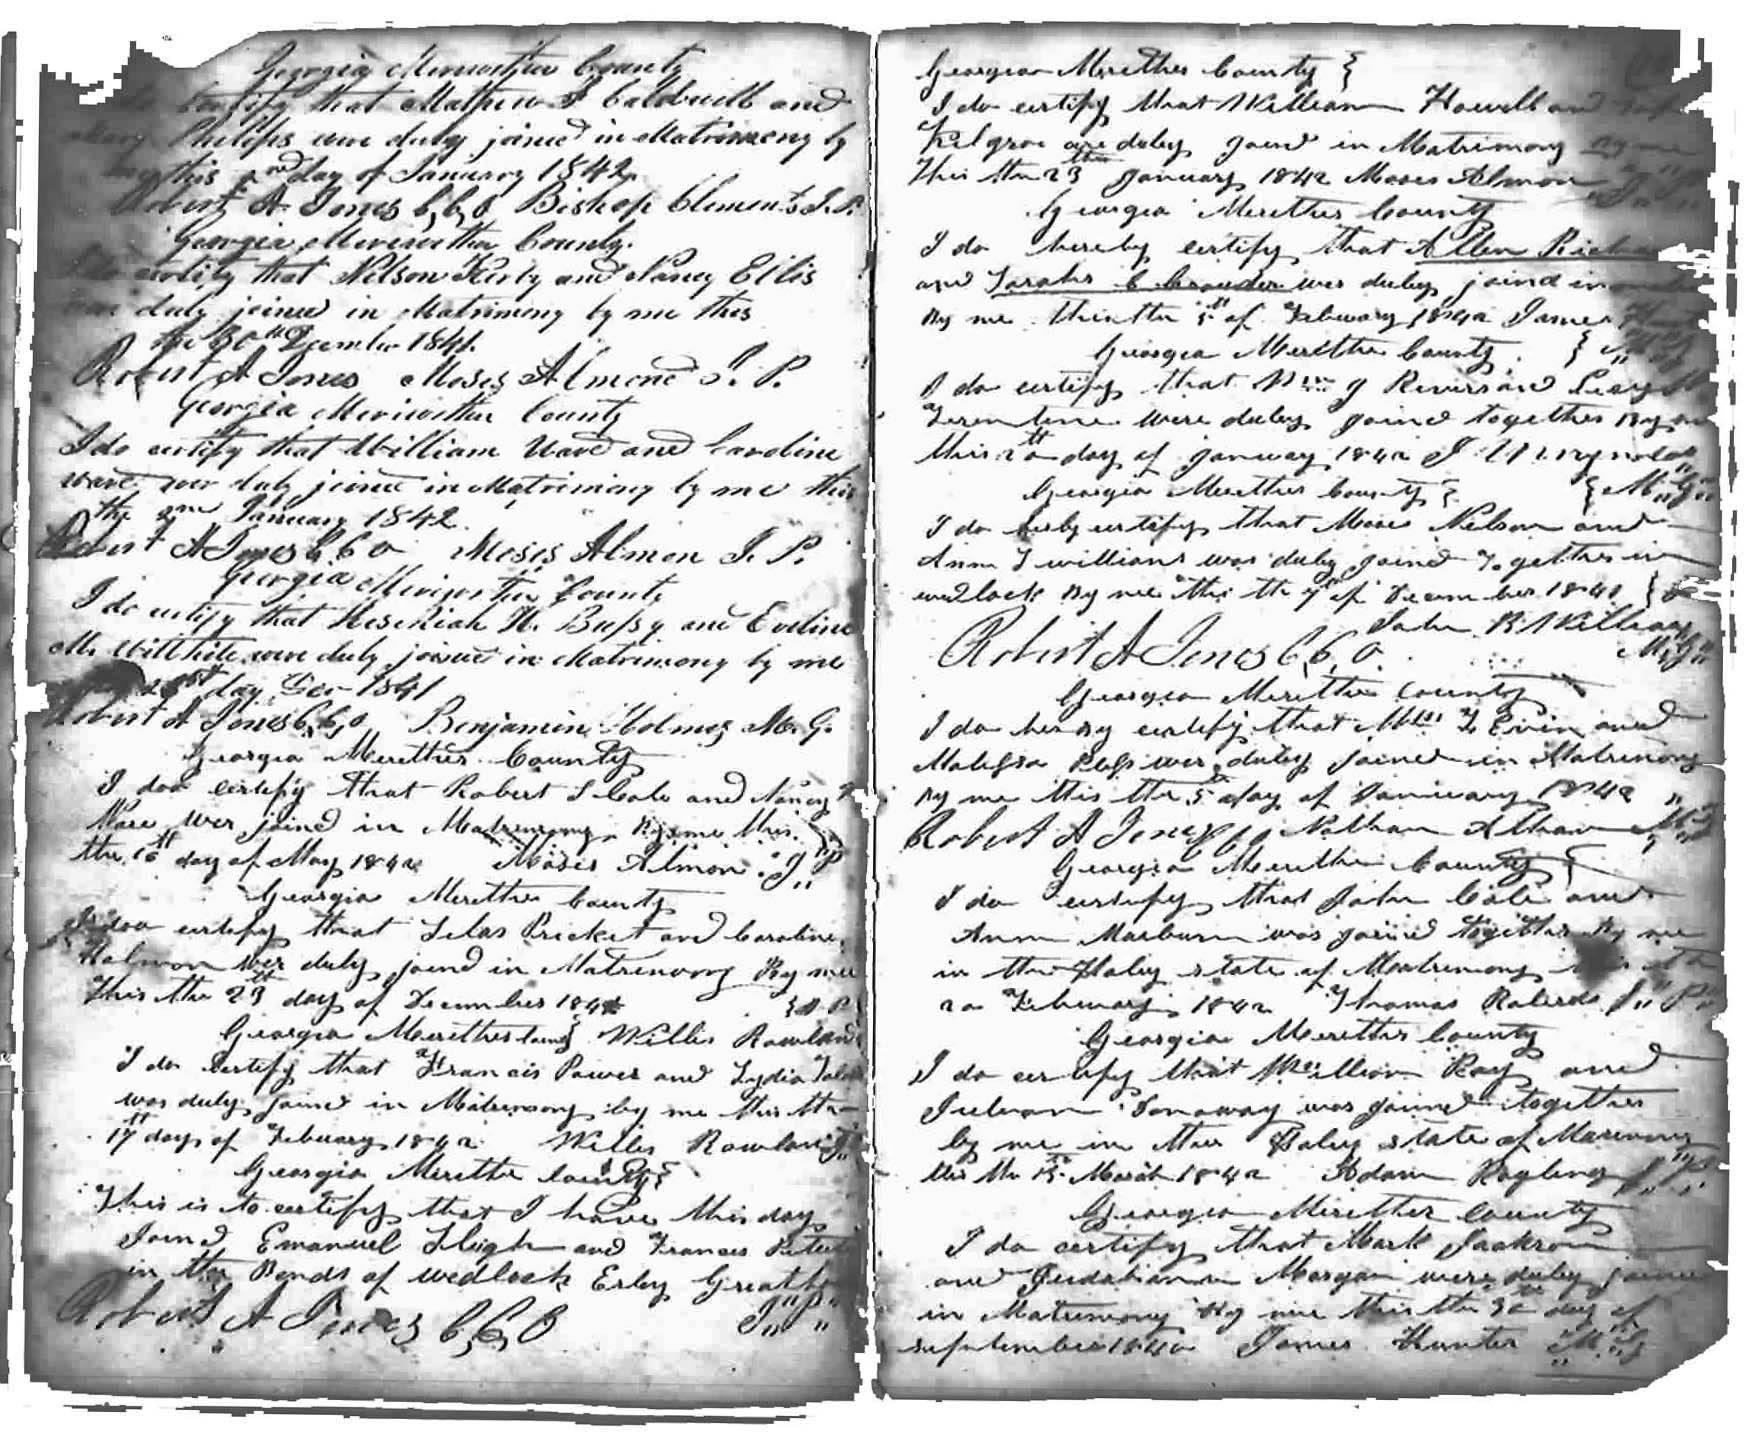 Georgia Meriwether County
certify that Mathew J Caldwell and
Mary Philips were duly joined in Matrimony by
me this 2nd day of January 1842
Robert A Jones C,C,O Bishop Clements J.P.
Georgia Meriwether County.
I do certify that Nelson Kirby and Nancy Ellis
were duly joined in Matrimony by me this
the 30th December 1841.
Robert A Jones Moses Almond J. P.
Georgia Meriwether County
I do certify that William Ware and Caroline
ware wer duly joined in Matrimony by me this
the 2nd January 1842.
Robert A Jones C C O Moses Almon J. P.
Georgia Meriwether County
I do certify that Heskiah H. Bussy and Eveline
M. Willhite were duly joined in Matrimony by me
21st day Dec 1841
Robert A Jones C,C,O Benjamin Holmes M. G.
Georgia Merether County
I doo certify that Robert S Cole and Nancy
wer joind in Matrimony By me this
the 16th day of May 1842 Moses Almon J,,P
Georgia Merether County
I doo certify that Silas Pricket and Caroline
Holmon wer duly joind in Matremony By me
this the 23th day of December 184 J.P.
Georgia Merether County Willis Rowland
I do Certify that Francis Power and Lydia
was duly joind in Matremony by me this the
17th day of Febuary 1842 Willis Rowland J,,
Georgia Merether County
This is to certify that I have this day
Joined Emanuel Sligh and Francis
in the Bonds of wedlock Erby
Robert A Jones C,C,O J,,P,,
Georgia Merether County
I do certify that William Howell and
Kilgroe are duley joind in Matrimony By me
this the 23th January 1842 Moses Almon J,,P
Georgia Merether County
I do hereby certify that Allen
and Sarahs C was duley joind in
By me this the 5th of Febuary 1842 James
Georgia Merether County
I do certify that Rivers and
were duley joind together By me
this 20th day of January 1842 J
Georgia Merether County M,,G,,
I do herby certify that Mose Nelson and
Ann T williams was duley joined Together in
wedlock By me this the 7th of December 1841
John R Williams
Robert A Jones C,C,O. M,,G,,
Georgia Merether County
I do herby certify that Wm and
Malissa was duley joined in Matremony
By me this the 5th day of Januuary 1842
Robert A Jones C C O Nathan
Georgia Merether County
I do certify that John Cole and
Ann was joined together By me
in the Holey state of Matremony this the
20 Febuary 1842 Thomas Roberds J,,P,,
Georgia Merether County
I do certify that William Ray and
was joined together
by me in the Holey state of
this the March 1842 Adam Ragling J,,P,,
Georgia Merether County
I do certify that Mark Jackson
and Morgan were duley joined
in Matremony By me this the 30th day of
September 1842 James Hunter M,,G